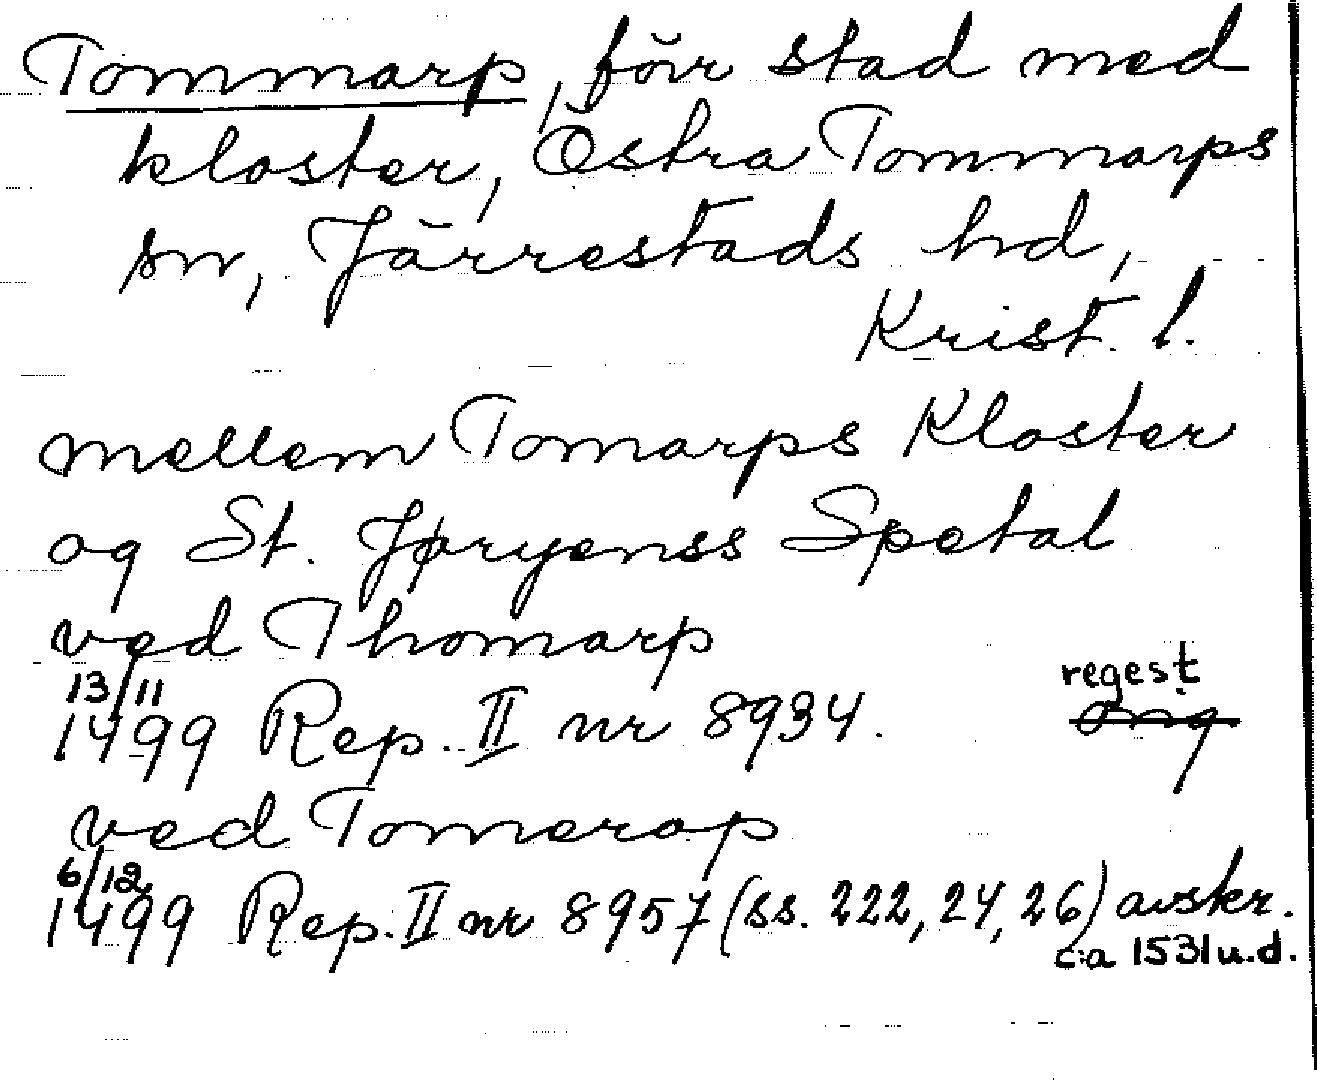 Tommarp, förr stad med
kloster, Östra Tommarps
sn, Järrestads hd,
Krist. l.
mellem Tomarps Kloster
og St. Jøryenss Spetal
ved Thomarp
13/11 regest
1499 Rep. II nr 8934. orig
ved Tomerop
6/12
1499 Rep. II nr 8957 (ss. 222, 24, 26) avskr.
ca 1531 u.d.